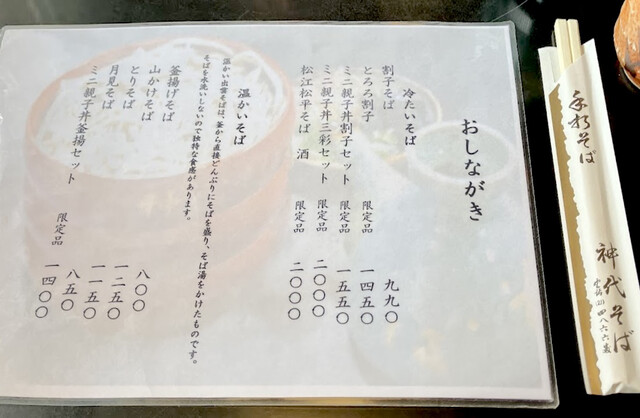 おしながき
冷たいそば
割子そば 九九〇
とろろ割子 限定品 一四五〇
ミニ親子丼割子セット 限定品 一五五〇
ミニ親子丼三彩セット 限定品 二〇〇〇
松江松平そば 酒 限定品 二〇〇〇
温かいそば
温かい出雲そばは、釜から直接どんぶりにそばを盛り、そば湯をかけたものです。
そばを水洗いしないので独特な食感があります。
釜揚げそば 八〇〇
山かけそば 一二五〇
とりそば 一一五〇
月見そば 八五〇
ミニ親子丼釜揚セット 限定品 一四〇〇
手打そば
神代そば
電話(21)四八六六番